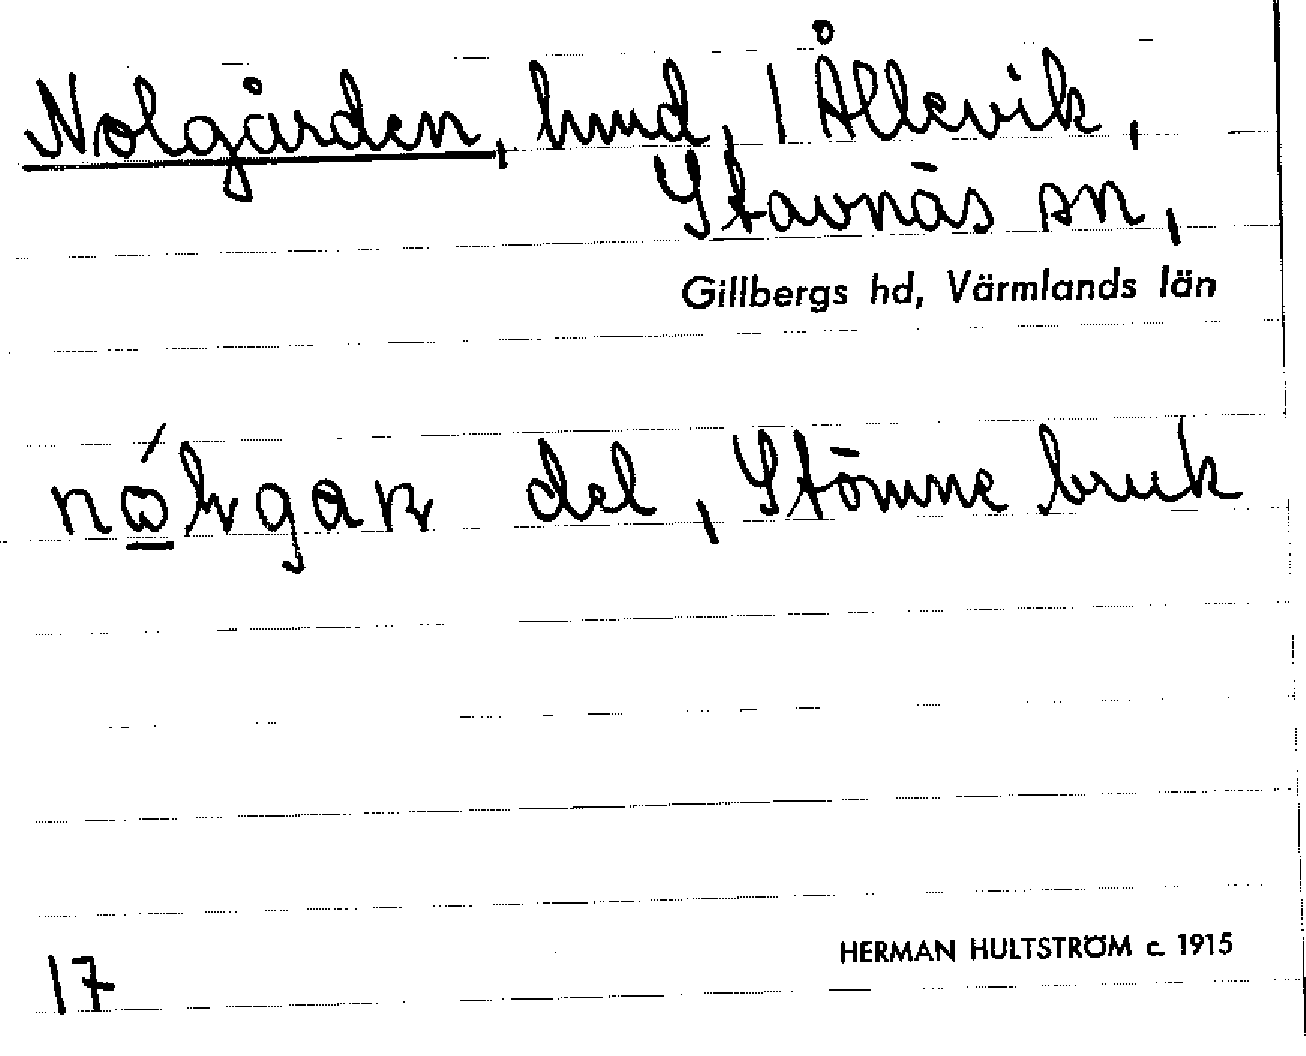 Nolgården, hmd, 1 Ållevik,
Stavnäs sn,
Gillbergs hd, Värmlands län
del, Stömne bruk
HERMAN HULTSTRÖM c. 1915
17